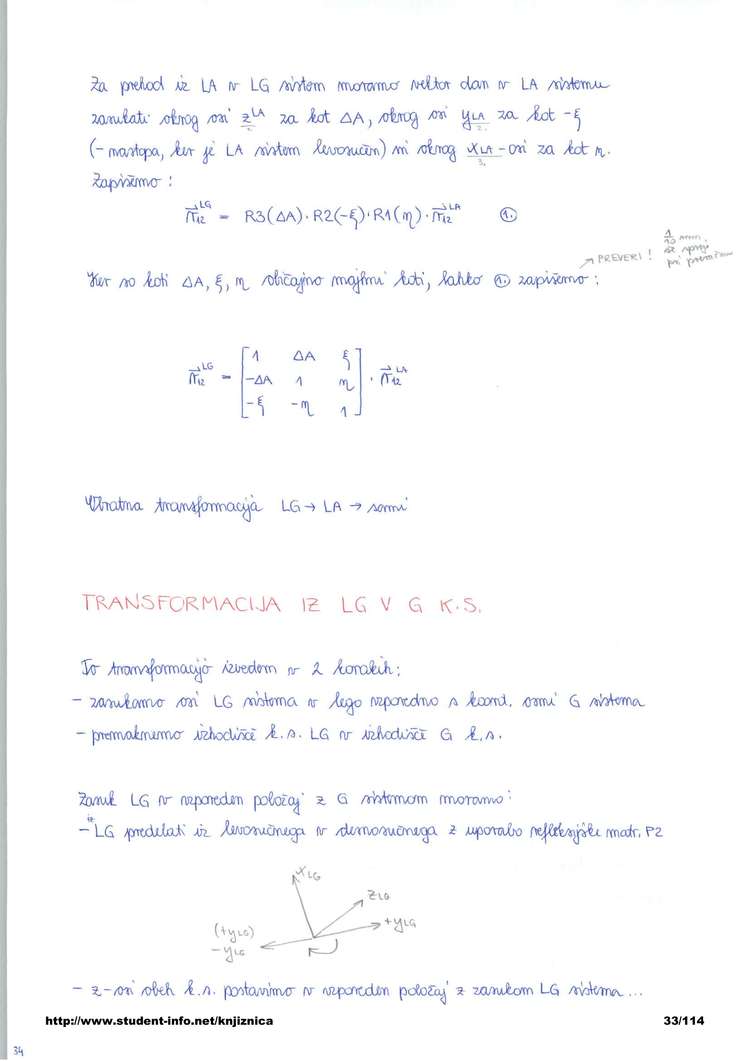 Za prehod iz LA v LG sistem moramo vektor dan v LA sistemu
zasukati okrog osi z^LA za kot ΔA, okrog osi y_LA za kot -ξ
2.
(- nastopa, ker je LA sistem levosučen) in okrog x_LA - osi za kot η.
3.
Zapišemo :
r⃗₁₂^LG = R3(ΔA)·R2(-ξ)·R1(η)·r⃗₁₂^LA ①.
↗ PREVERI !
pri
Ker so koti ΔA, ξ, η običajno majhni koti, lahko ①. zapišemo :
r⃗₁₂^LG = [ 1 ΔA ξ
-ΔA 1 η
-ξ -η 1 ] · r⃗₁₂^LA
Obratna transformacija LG → LA → sami
TRANSFORMACIJA IZ LG V G K.S.
To transformacijo izvedem v 2 korakih:
- zasukamo osi LG sistema v lego vzporedno s koord. osmi G sistema
- premaknemo izhodišče k.s. LG v izhodišče G k.s.
Zasuk LG v vzporeden položaj z G sistemom moramo:
iz
- LG predelati iz levosučnega v desnosučnega z uporabo refleksijske matr. P2
x_LG
z_LG
+y_LG
(+y_LG)
-y_LG
- z-osi obeh k.s. postavimo v vzporeden položaj z zasukom LG sistema ...
http://www.student-info.net/knjiznica 33/114
34